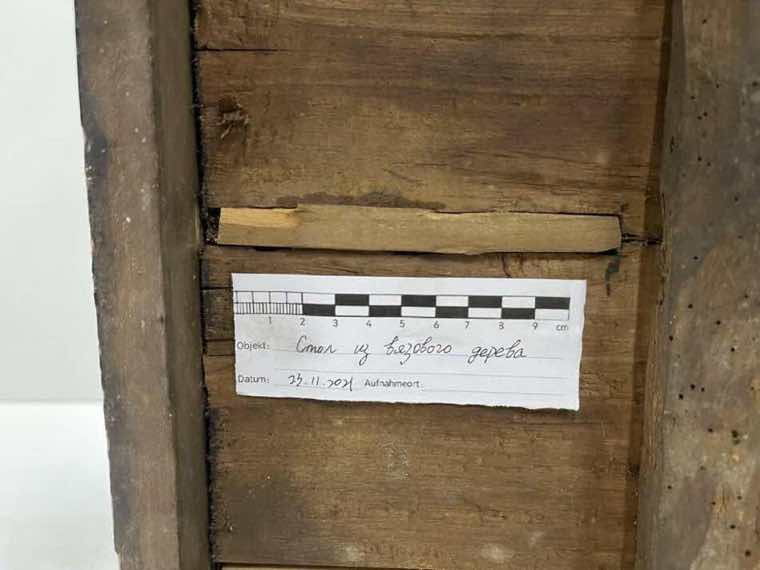 1 2 3 4 5 6 7 8 9 cm
Objekt: Стол из вязового дерева
Datum: 23.11.2021 Aufnahmeort: